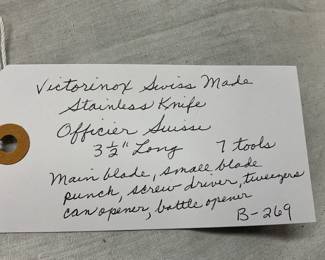 Victorinox Swiss Made
Stainless Knife
Officier Suisse
3 1/2" Long 7 tools
Main blade, small blade
punch, screw driver, tweezers
can opener, bottle opener
B-269